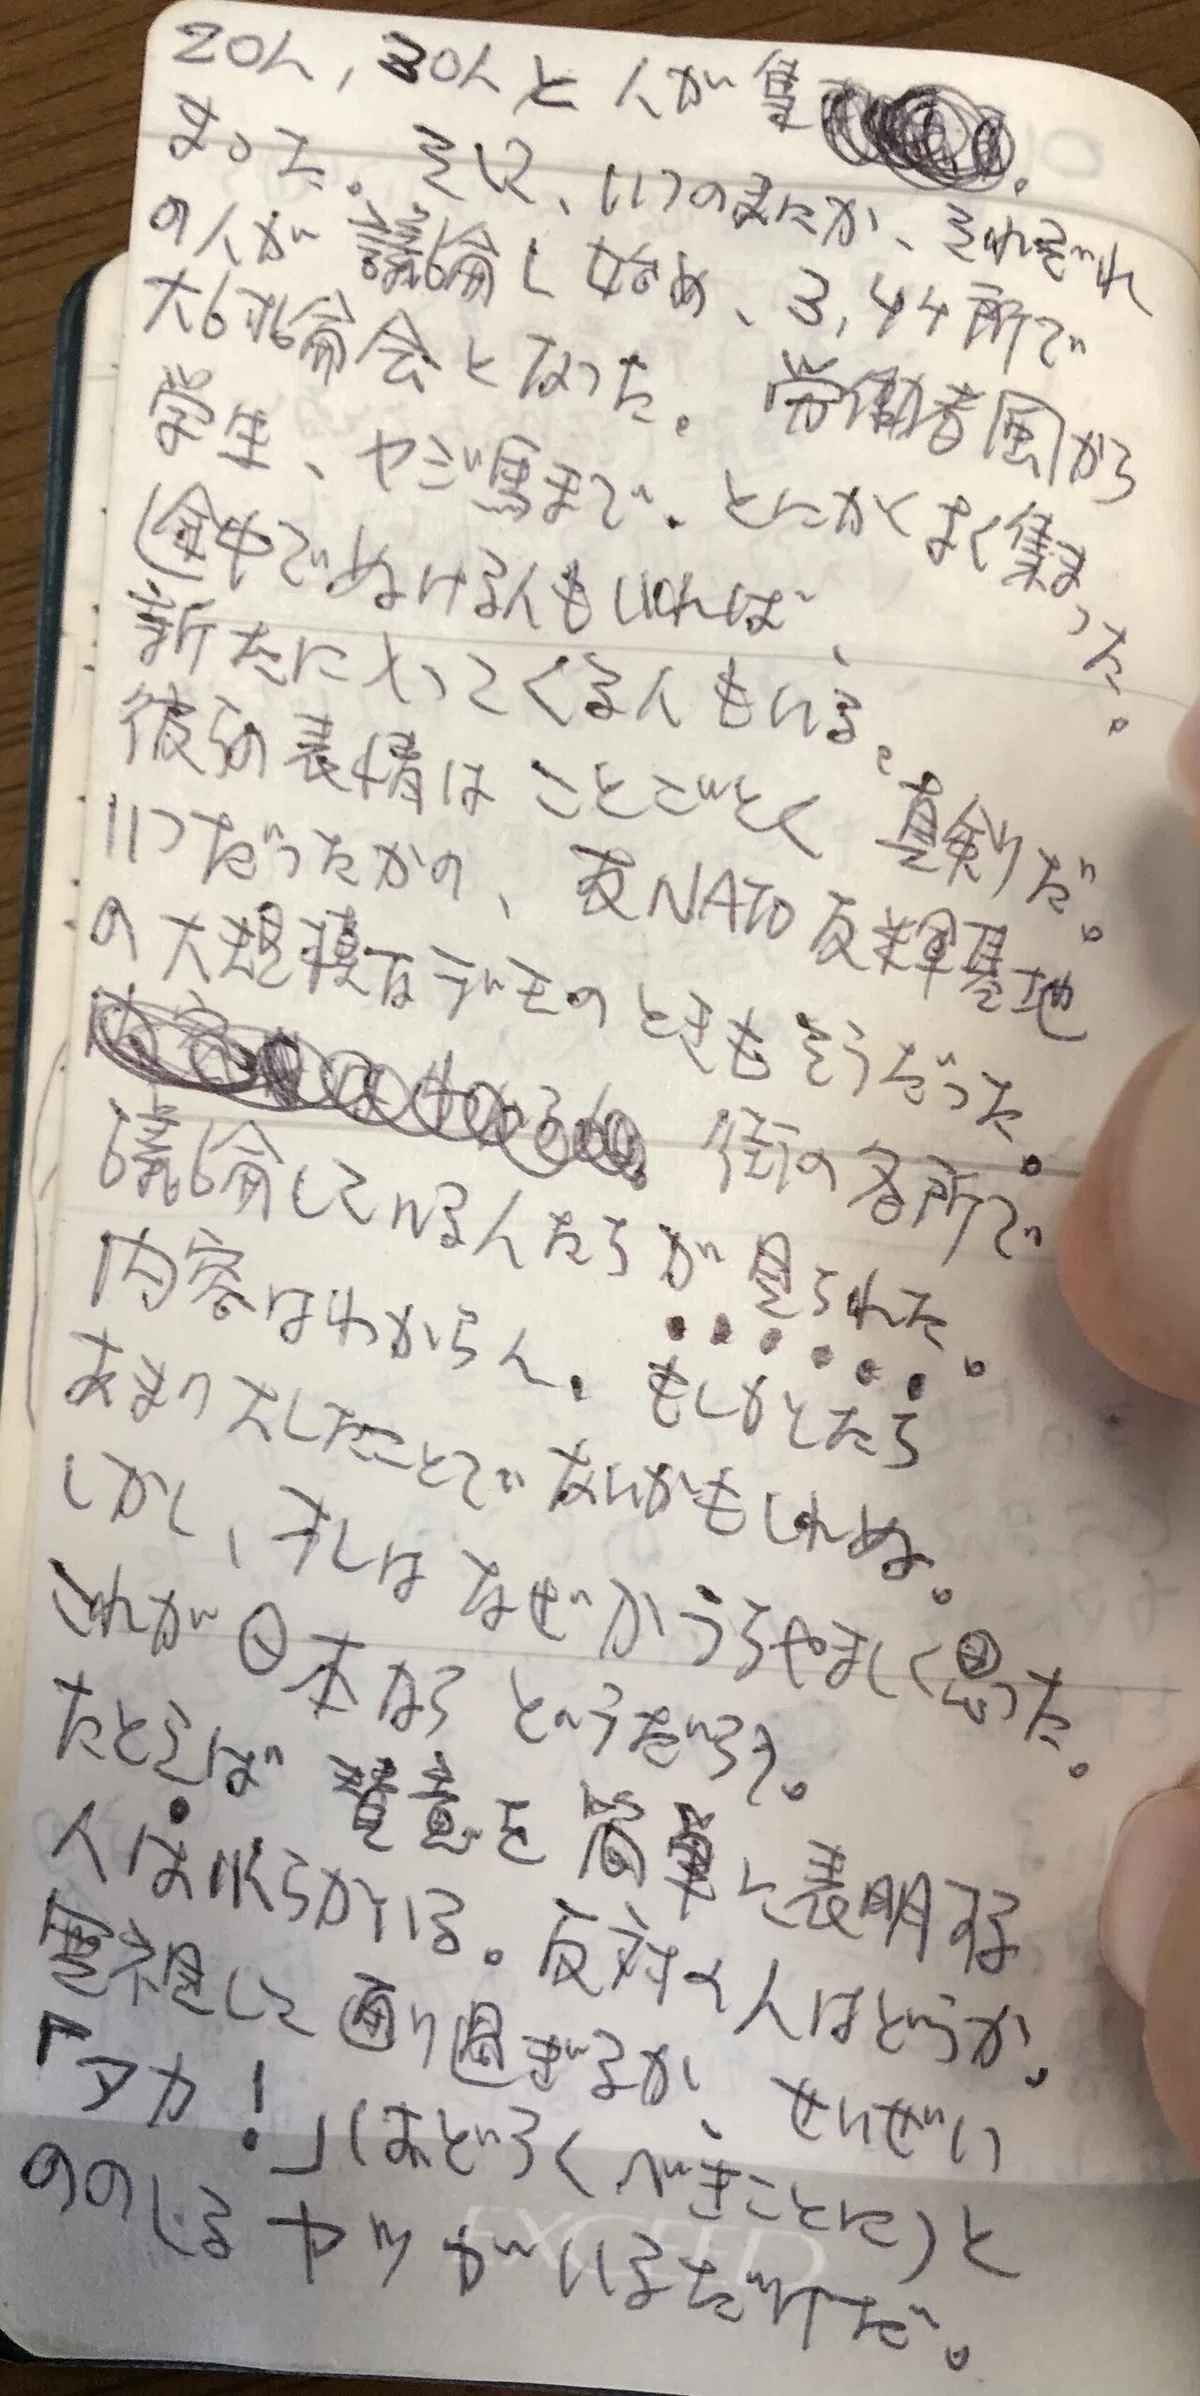 20人,30人と人が集
まった。そして、いつのまにか、それぞれ
の人が議論し始め、3,4ヶ所で
大討論会となった。労働者風から
学生、ヤジ馬まで、とにかくよく集まった。
途中でぬける人もいれば、
新たにやってくる人もいる。
彼らの表情はことごとく真剣だ。
いつだったかの、反NATO反米軍基地
の大規模なデモのときもそうだった。
街の各所で
議論している人たちが見られた。
内容はわからん。もしかしたら
あまり大したことでないかもしれぬ。
しかし、オレはなぜかうらやましく思った。
これが日本ならどうだろう。
たとえば賛意を簡単に表明する
人はいくらかいる。反対の人はどうか。
無視して通り過ぎるか、せいぜい
「アカ!」(おどろくべきことに)と
ののしるヤツがいるだけだ。
EXCEED